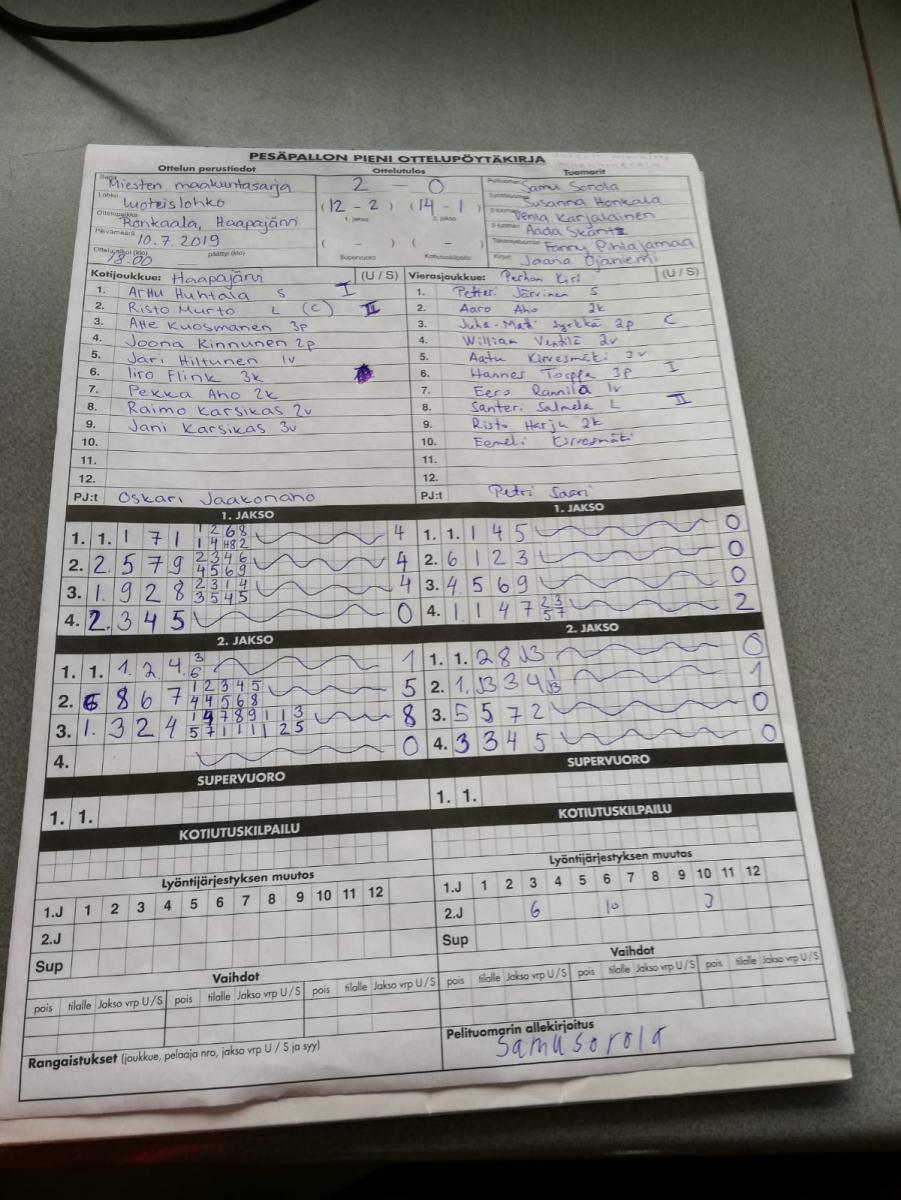 PESÄPALLON PIENI OTTELUPÖYTÄKIRJA
Ottelun perustiedot Ottelutulos Tuomarit
Sarja Miesten maakuntasarja
Lohko Luoteislohko
Ottelupaikka Ronkaala, Haapajärvi
Päivämäärä 10.7.2019
Ottelu alkoi (klo) 18:00 päättyi (klo)
2 - 0
(12 - 2) (14 - 1)
1. jakso 2. jakso
( - ) ( - )
Supervuoro Kotiutuskilpailu
Pelituomari Samu Sorola
Susanna Honkala
2-tuomari Venla Karjalainen
3-tuomari Aada Skantz
Takarajatuomari Fanny Pihlajamaa
Kirjuri Jaana Ojaniemi
Kotijoukkue: Haapajärvi (U / S)
1. Arttu Huhtala S I
2. Risto Murto L (C) II
3. Atte Kuosmanen 3p
4. Joona Kinnunen 2p
5. Jari Hiltunen 1v
6. Iiro Flink 3k
7. Pekka Aho 2k
8. Raimo Karsikas 2v
9. Jani Karsikas 3v
10.
11.
12.
PJ:t Oskari Jaakonaho
Vierasjoukkue: Perhon Kiri (U / S)
1. Petteri Järvinen S
2. Aaro Aho 2k
3. Juha-Matti Syrkkä 2p C
4. William Ventilä 2v
5. Aatu Kirvesmäki 3v
6. Hannes Torppa 3p I
7. Eero Rannila 1v
8. Santeri Salmela L II
9. Risto Harju 2k
10. Eemeli Kirvesmäki
11.
12.
PJ:t Petri Saari
1. JAKSO
1. 1. 1 7 1 4
1 2 6 8
2. 2. 5 7 9 4
2 3 4 6
4 5 6 9
3. 1. 9 2 8 4
2 3 1 4
3 5 4 5
4. 2. 3 4 5 0
1. JAKSO
1. 1. 1 4 5 0
2. 6 1 2 3 0
3. 4 5 6 9 0
4. 1. 1 4 7 2
2 3
5 7
2. JAKSO
1. 1. 1. 2 4 1
3
6
2. 6 8 6 7 5
1 2 3 4 5
4 4 5 6 8
3. 1. 3 2 4 8
1 9 7 8 9 1 1 3
5 7 1 1 1 1 2 5
4. 0
2. JAKSO
1. 1. 2 8 J3 0
2. 1. J3 3 4 1
1
J3
3. 5 5 7 2 0
4. 3 3 4 5 0
SUPERVUORO
1. 1.
KOTIUTUSKILPAILU
SUPERVUORO
1. 1.
KOTIUTUSKILPAILU
Lyöntijärjestyksen muutos
1.J 1 2 3 4 5 6 7 8 9 10 11 12
2.J
Sup
Vaihdot
pois tilalle Jakso vrp U/S pois tilalle Jakso vrp U/S pois tilalle Jakso vrp U/S
Rangaistukset (joukkue, pelaaja nro, jakso vrp U / S ja syy)
Lyöntijärjestyksen muutos
1.J 1 2 3 4 5 6 7 8 9 10 11 12
2.J 6 10 3
Sup
Vaihdot
pois tilalle Jakso vrp U/S pois tilalle Jakso vrp U/S pois tilalle Jakso vrp U/S
Pelituomarin allekirjoitus
Samu Sorola